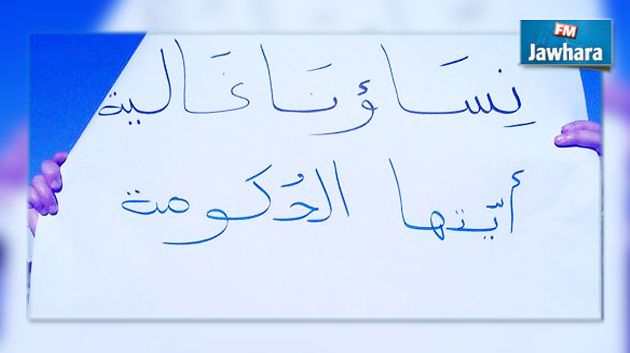 FM
Jawhara
نِسَاؤنَا غَالية
أيّتها الحُكومة